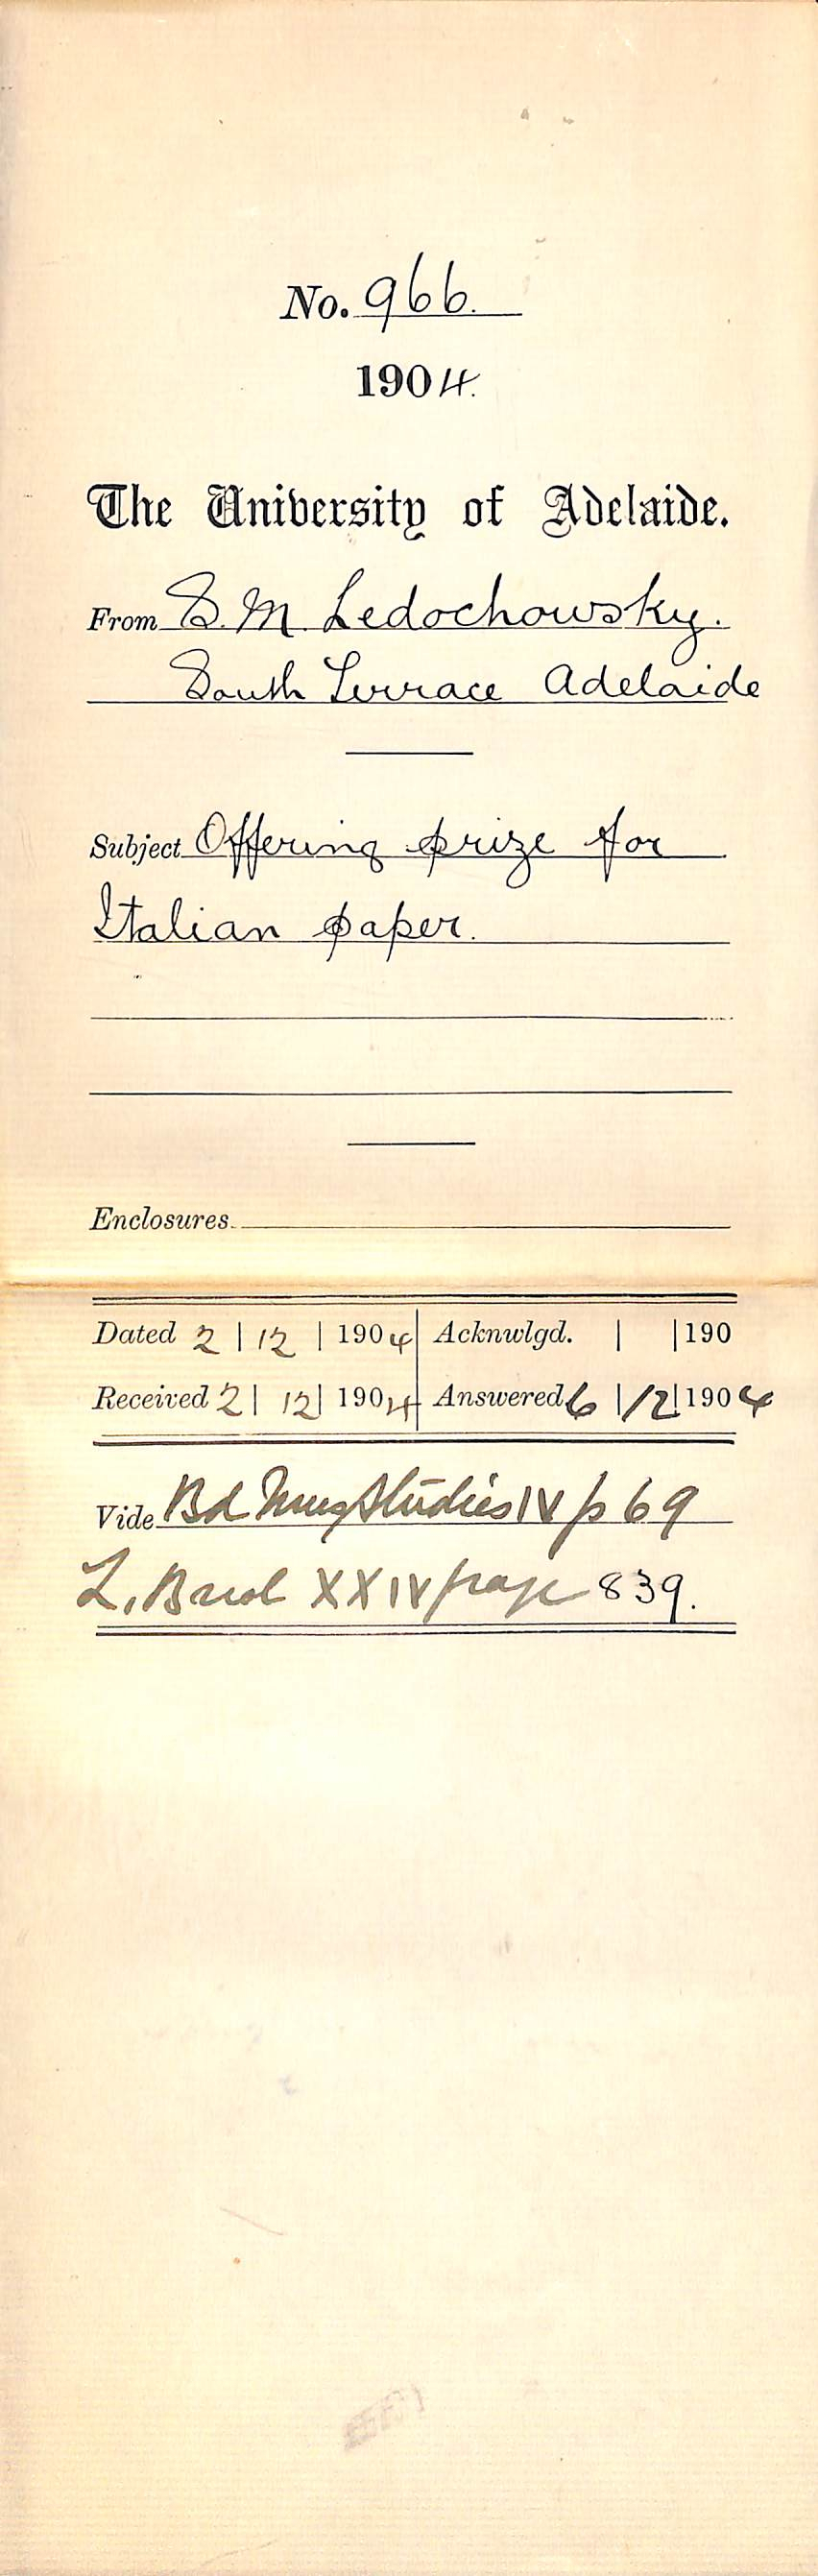 No. 966.
1904.
The University of Adelaide.
From S. M. Ledochowsky.
South Terrace Adelaide
Subject Offering prize for
Italian paper.
Enclosures
Dated 2 | 12 | 1904 Acknwlgd. | | 190
Received 2 | 12 | 1904 Answered 6 | 12 | 1904
Vide Bd Mus Studies IV p 69
XXIV page 839.